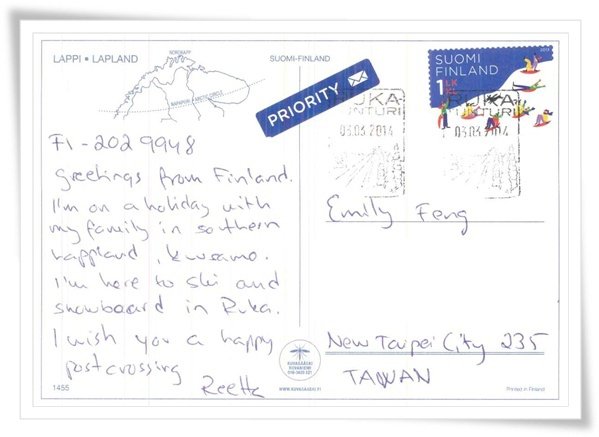 LAPPI • LAPLAND
NORDKAPP
NAPAPIIRI - ARCTIC CIRCLE
SUOMI-FINLAND
PRIORITY
2013
SUOMI
FINLAND
1 LK
KL
RUKA
TUNTURI
03.03.2014
RUKA
TUNTURI
03.03.2014
FI - 2029948
Greetings from Finland.
I'm on a holiday with
my family in southern
Lappland, Kuusamo.
I'm here to ski and
snowboard in Ruka.
I wish you a happy
postcrossing
Reetta
Emily Feng
New Taipei City 235
TAIWAN
1455
KUVASÄÄSKI
ROVANIEMI
WWW.KUVASAASKI.FI
Printed in Finland